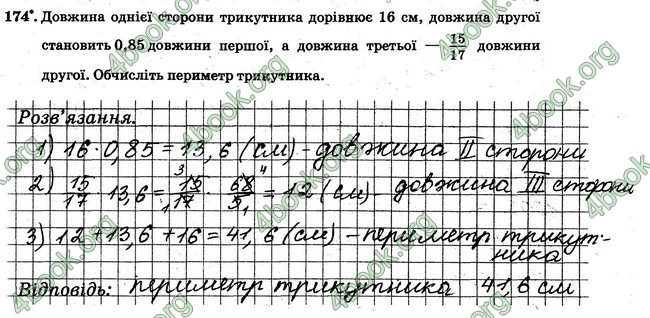 174°. Довжина однієї сторони трикутника дорівнює 16 см, довжина другої
становить 0,85 довжини першої, а довжина третьої — 15/17 довжини
другої. Обчисліть периметр трикутника.
Розв'язання.
1) 16 · 0,85 = 13,6 (см) - довжина II сторони
2) 15/17 · 13,6 = 15/17 · 68/5 = 12 (см) - довжина III сторони
3) 12 + 13,6 + 16 = 41,6 (см) - периметр трикут-
ника
Відповідь: периметр трикутника 41,6 см
4book.org